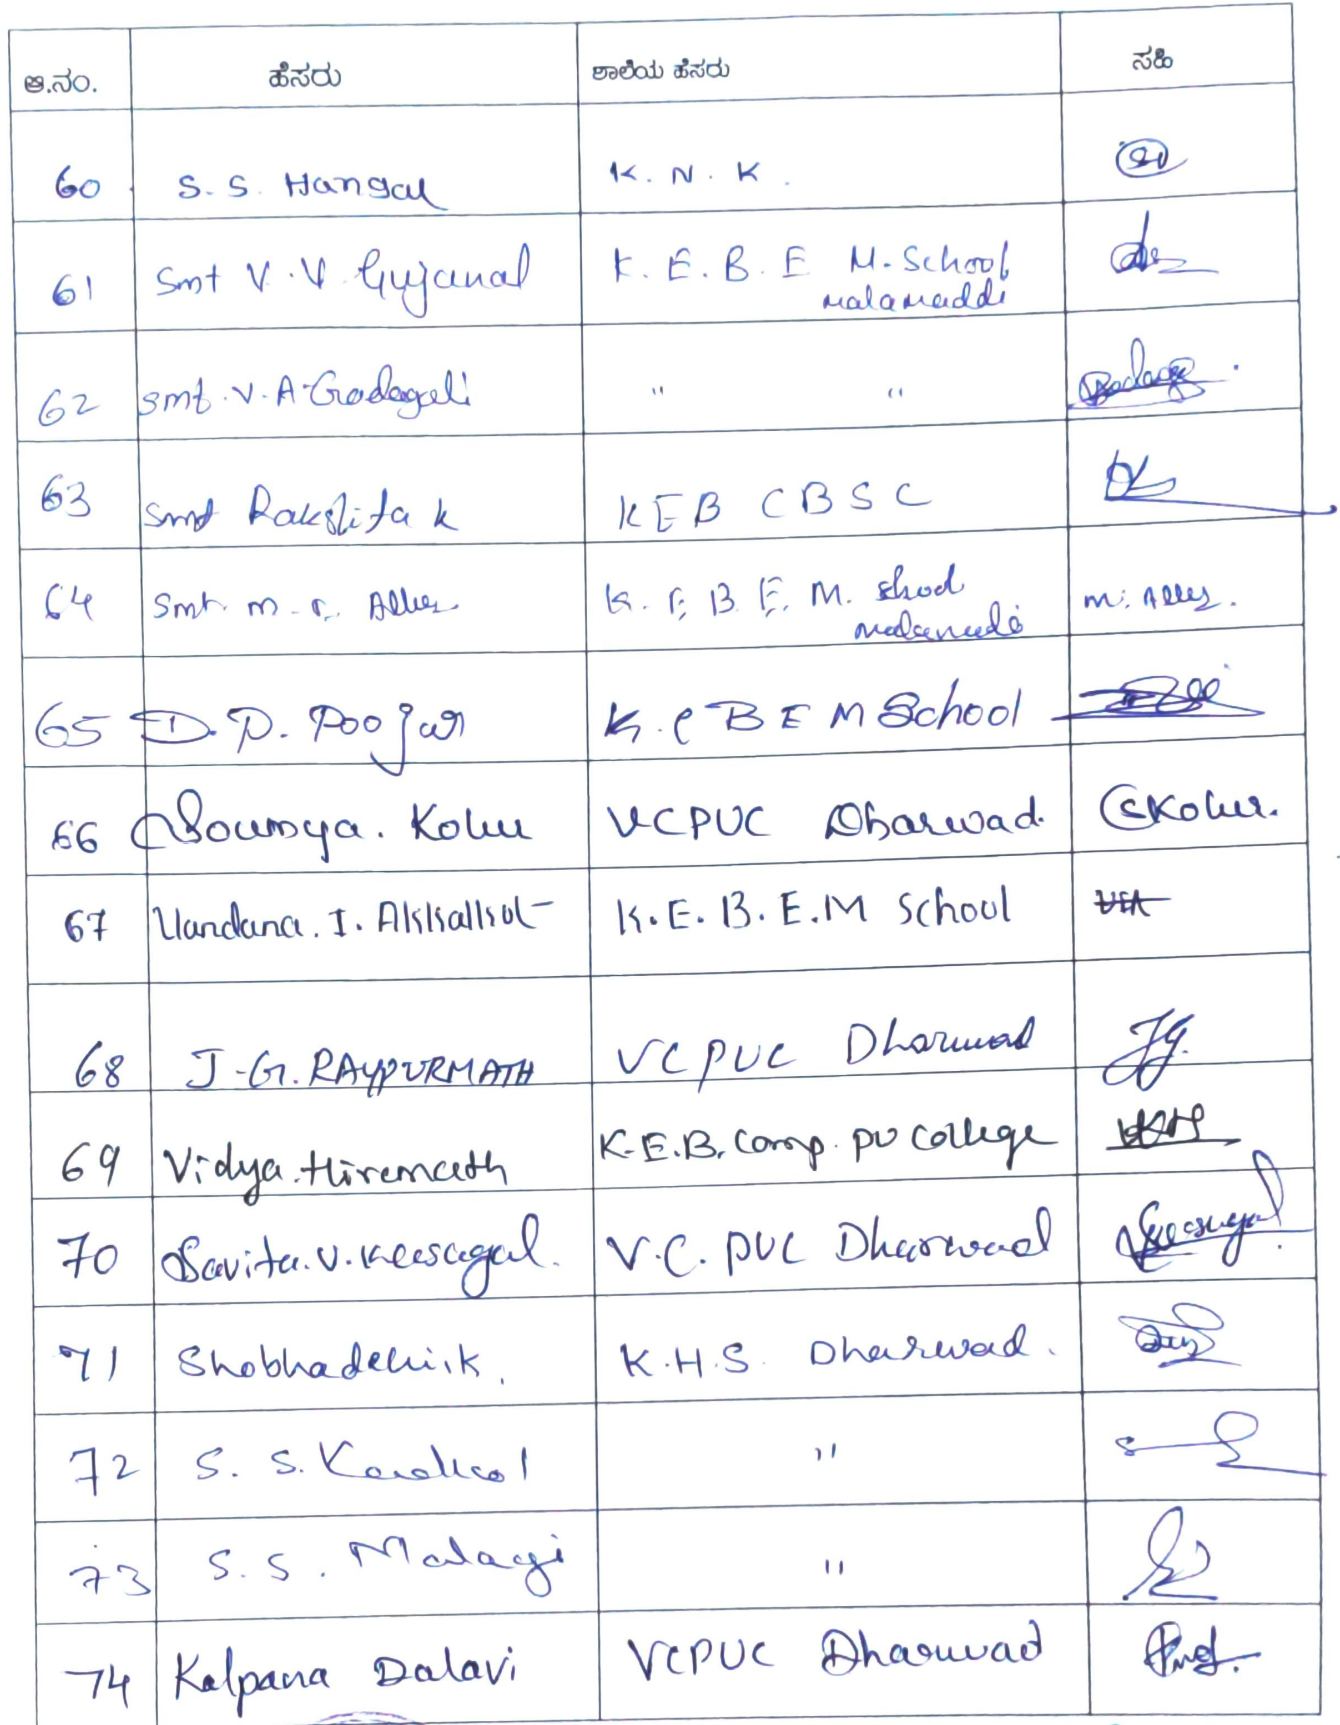 ಆ.ನಂ. ಹೆಸರು ಶಾಲೆಯ ಹೆಸರು ಸಹಿ
60 S. S. Hangal K. N. K.
61 Smt V. V. Gujanal K. E. B. E M. School
Malamaddi
62 Smt. V. A. Gadageli " "
63 Smt Rakshita K KEB CBSC
64 Smt. M. K. E. B. E. M. School
65 D. P. Poojar K. E B E M School
66 Soumya. Kolur VCPUC Dharwad. SKolur.
67 Vandana. I. Akkalkot K. E. B. E. M School
68 J. G. RAYPURMATH VC PUC Dharwad
69 Vidya. Hiremath K. E. B. Comp. PU College
70 Savita. V. Keesugal. V. C. PUC Dharwad
71 Shobhadevi. K. K. H. S. Dharwad.
72 S. S. "
73 S. S. Malagi "
74 Kalpana Dalavi VCPUC Dharwad